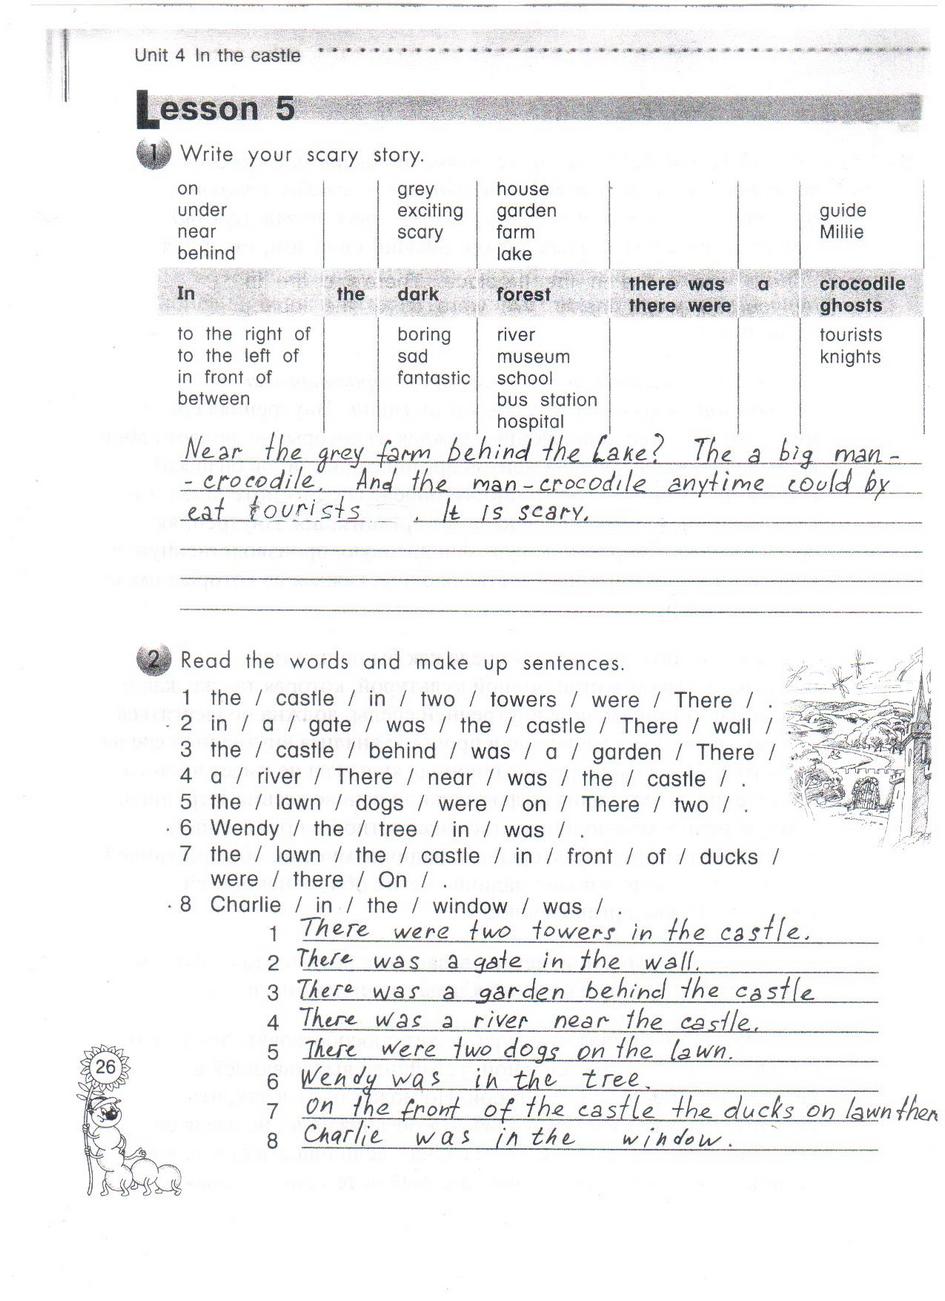 Unit 4 In the castle
Lesson 5
1 Write your scary story.
on grey house
under exciting garden guide
near scary farm Millie
behind lake
In the dark forest there was a crocodile
there were ghosts
to the right of boring river tourists
to the left of sad museum knights
in front of fantastic school
between bus station
hospital
Near the grey farm behind the Lake? The a big man-
-crocodile. And the man-crocodile anytime could by
eat tourists . It is scary.
2 Read the words and make up sentences.
1 the / castle / in / two / towers / were / There / .
2 in / a / gate / was / the / castle / There / wall / .
3 the / castle / behind / was / a / garden / There /
4 a / river / There / near / was / the / castle / .
5 the / lawn / dogs / were / on / There / two / .
6 Wendy / the / tree / in / was / .
7 the / lawn / the / castle / in / front / of / ducks /
were / there / On / .
8 Charlie / in / the / window / was / .
1 There were two towers in the castle.
2 There was a gate in the wall.
3 There was a garden behind the castle
4 There was a river near the castle.
5 There were two dogs on the lawn.
6 Wendy was in the tree.
7 On the front of the castle the ducks on lawn ther
8 Charlie was in the window.
26